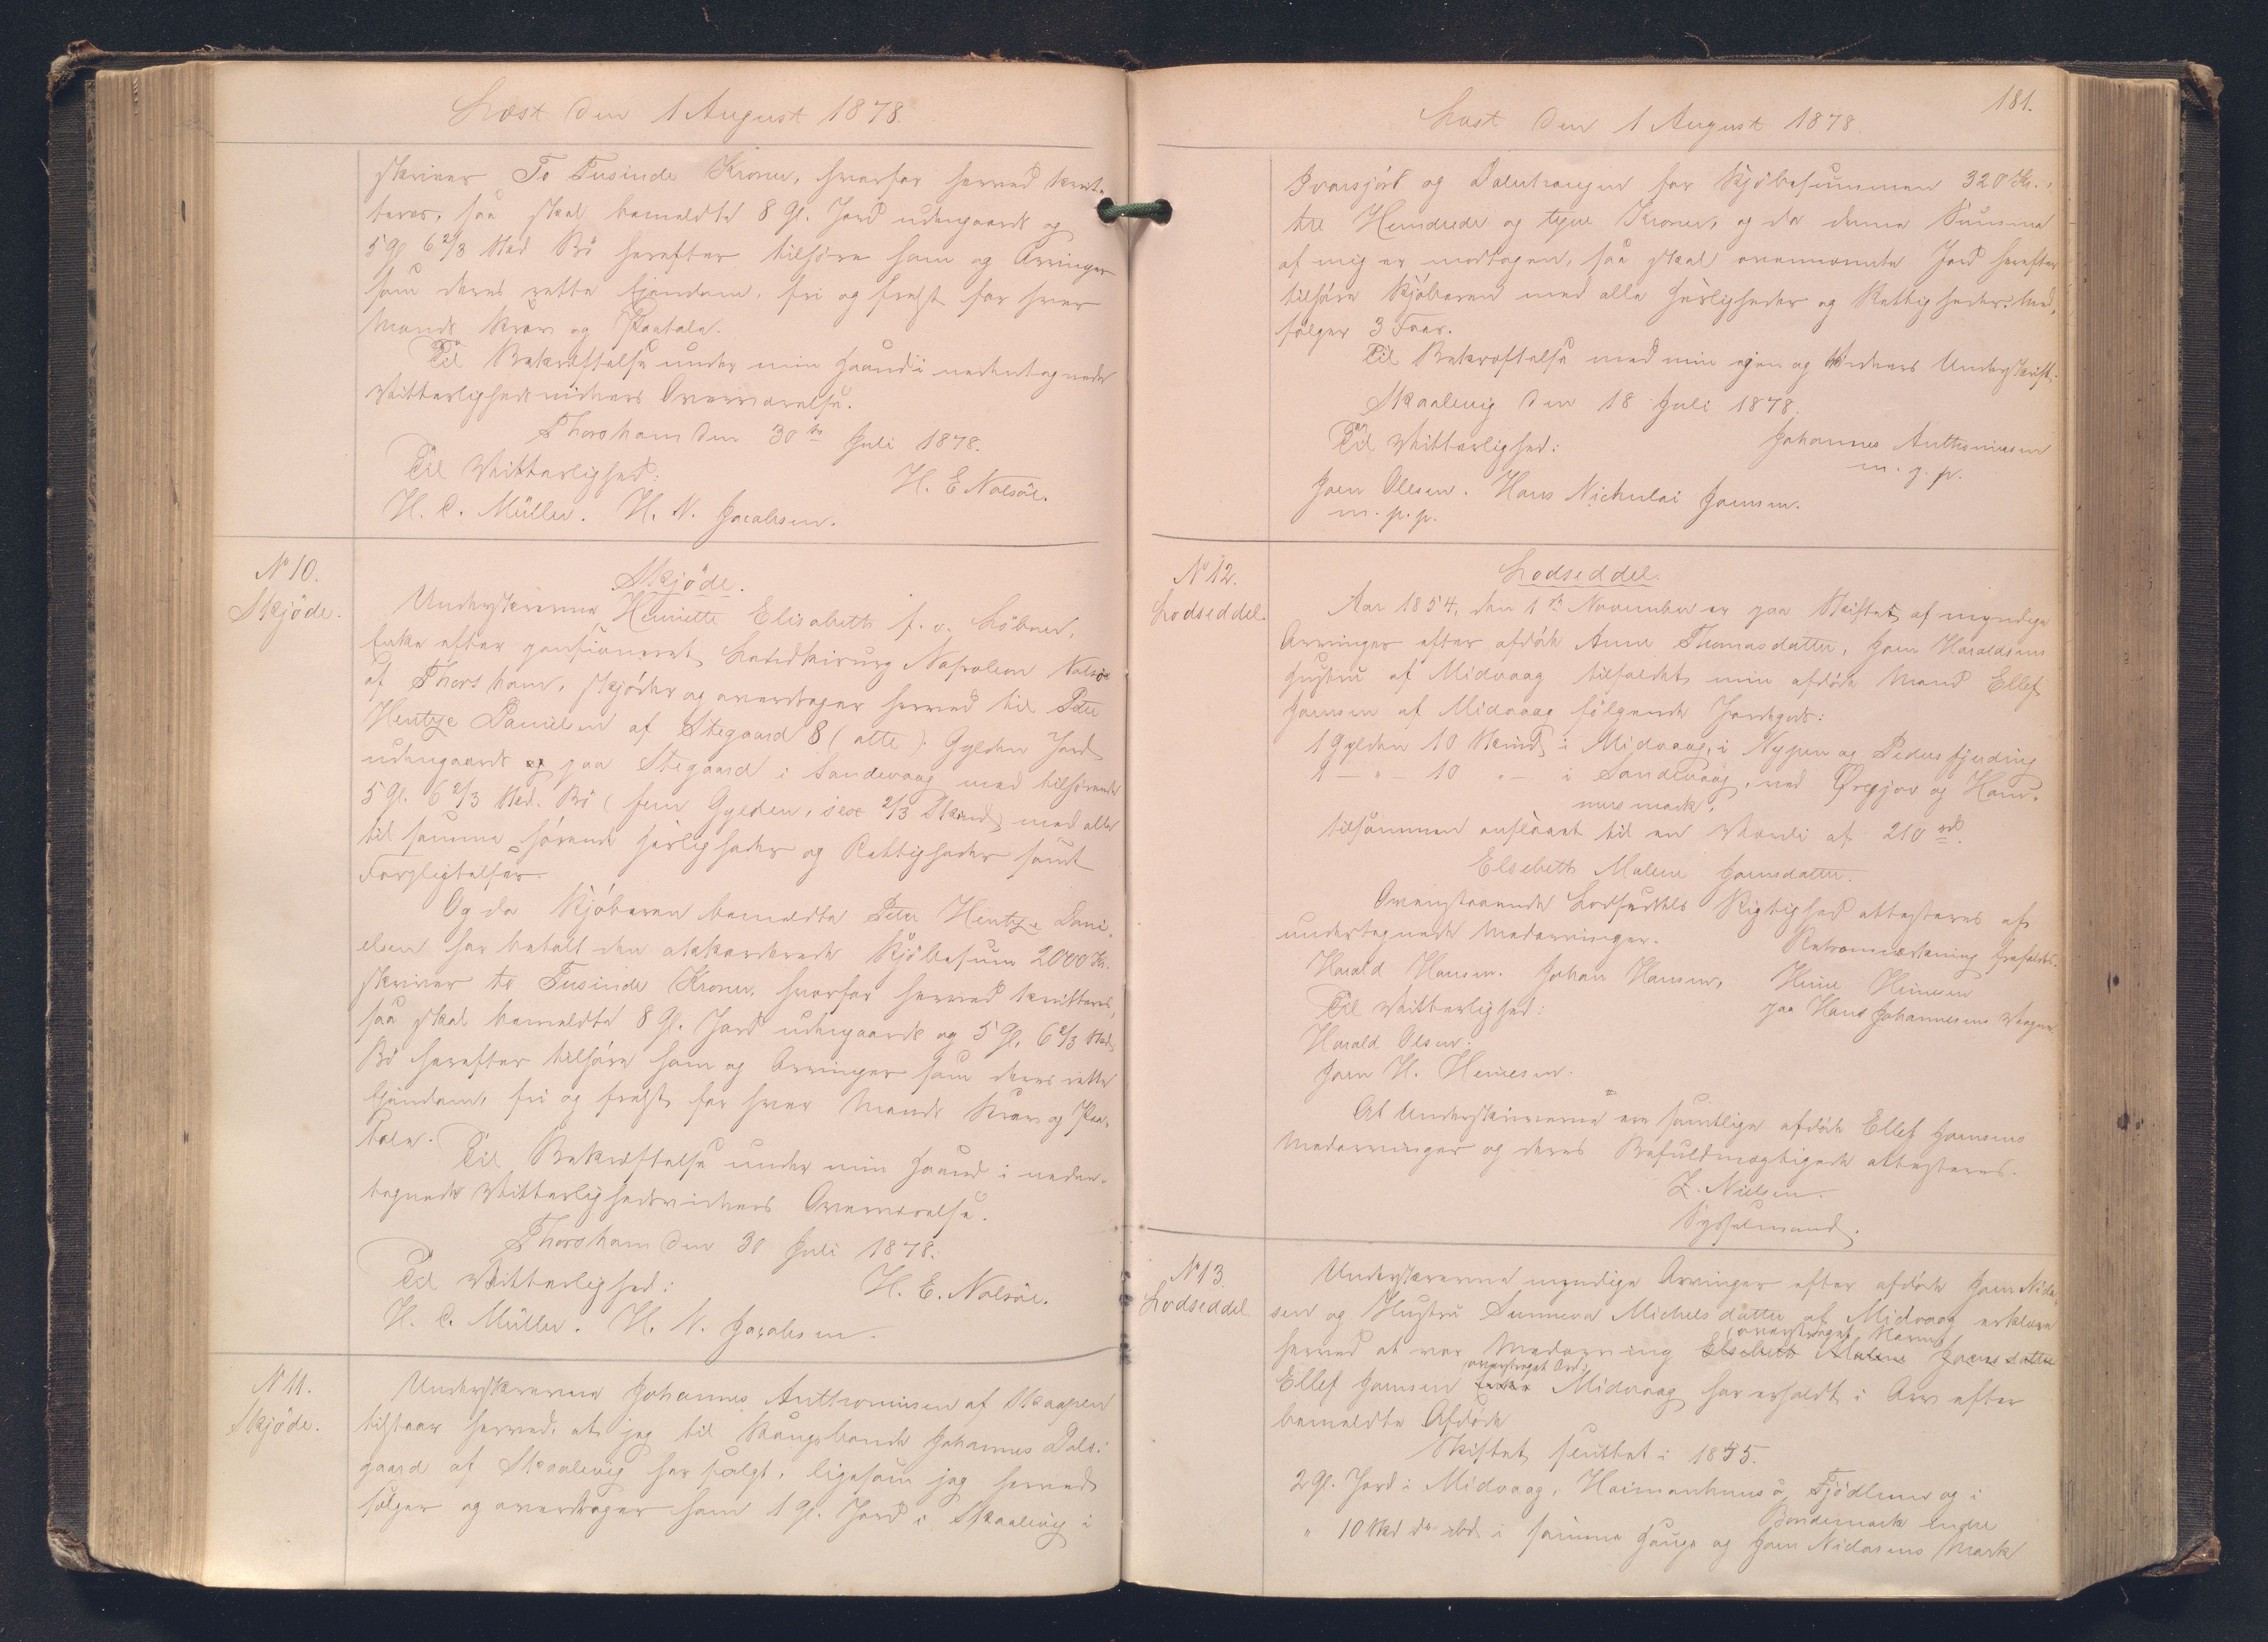 Læst den 1 August 1878.
skriver To Tusinde Kroner, hvorfor herved kvit-
teres, saa skal bemeldte 8 Gl. Jord udengaards og
5 Gl 6 2/3 Skd Bö herefter tilhöre ham og Arvinger
som deres rette Ejendom, fri og frelst for hver
Mands Krav og Paatale.
Til Bekræftelse under min Haand i undertegnede
Vitterlighedsvidners Overværelse.
Thorshavn den 30te Juli 1878.
Til Vitterlighed:
H. E Nolsöe.
H. C. Müller. H. N. Jacobsen.
No 10.
Skjöde.
Skjöde.
Underskrevne Henriette Elisabeth f. v. Löbner,
Enke efter pensioneret Landkirurg Napoleon Nolsöe
af Thorshavn, skjöder og overdrager herved til Peter
Hentze Danielsen af Stegaard 8 (otte) Gylden Jord
udengaards og paa Stegaard i Sandevaag med tilhörende
5 Gl. 6 2/3 Skd. Bö (fem Gylden, sex 2/3 Skind) med alle
til samme hörende Herligheder og Rettigheder samt
Forpligtelser.
Og da Kjöberen bemeldte Peter Hentze Dani-
elsen har betalt den akkorderede Kjöbesum 2000 Kr.
skriver to Tusinde Kroner, hvorfor herved kvitteres,
saa skal bemeldte 8 Gl. Jord udengaards og 5 Gl. 6 2/3 Skd
Bö herefter tilhöre ham og Arvinger som deres rette
Ejendom, fri og frelst for hver Mands Krav og Paa-
tale.
Til Bekræftelse under min Haand i under-
tegnede Vitterlighedsvidners Overværelse.
Thorshavn den 30 Juli 1878.
Til Vitterlighed:
H. E. Nolsöe.
H. C. Müller. H. N. Jacobsen.
No 11.
Skjöde.
Underskrevne Johannes Anthoniusen af Skaapen
tilstaar herved, at jeg til Kongsbonde Johannes Dals-
gaard af Skaalevig har solgt, ligesom jeg herved
sælger og overdrager ham 1 Gl. Jord i Skaalevig i
181.
Læst den 1 August 1878
og Dalentougen for Kjöbesummen 320 Kr.,
tre Hundrede og tyve Kroner, og da denne Summa
af mig er modtagen, saa skal ovennævnte Jord herefter
tilhöre Kjöberen med alle Herligheder og Rettigheder. Med-
fölger 3 Faar.
Til Bekræftelse med min egen og Vidners Underskrift.
Skaalevig den 18 Juli 1878.
Til Vitterlighed:
Johannes Anthoniusen
m. p.
Joen Olesen. Hans Nicholai Joensen.
m. p. p.
No 12.
Lodseddel.
Lodseddel.
Aar 1854, den 1ste November er paa Skiftet af myndige
Arvinger efter afdöde Anne Thomasdatter, Joen Haraldsens
Hustru af Midvaag tilfaldet min afdöde Mand Ellef
Joensen af Midvaag fölgende Jordegods:
1 Gylden 10 Skind i Midvaag, i Nypen og Peders fjerding
1 - " - 10 " - i Sandevaag, ned Örgjov og Ham-
mers mark,
tilsammen anslaaet til en Værdi af 210 rd.
Elsebeth Malene Joensdatter.
Ovenstaaende Lodseddels Rigtighed attesteres af
undertegnede Medarvinger.
Harald Hansen. Johan Hansen, Heine Heinesen
paa Hans Johannesens Vegne.
Til Vitterlighed:
Harald Olsen.
Joen H. Heinesen.
At Underskriverne ere samtlige afdöde Ellef Joensens
Medarvinger og deres Befuldmægtigede attesteres.
Z. Nielsen.
Sysselmand.
No 13.
Lodseddel
Underskrevne myndige Arvinger efter afdöde Joen Nicla-
sen og Hustru Sunneva Michelsdatter af Midvaag erklære
(overstreget Navn)
herved at vor Medarving Elsebeth Malene Joensdatter
overstreget Ord:
Ellef Joensen Enke Midvaag har erholdt i Arv efter
bemeldte Afdöde
Skiftet sluttet i 1845.
2 Gl. Jord i Midvaag, Heimanhuus å, Fjödlene og i
Bondemark Indre
" 10 Skd do sted i samme Hauge og Joen Niclasens Mark